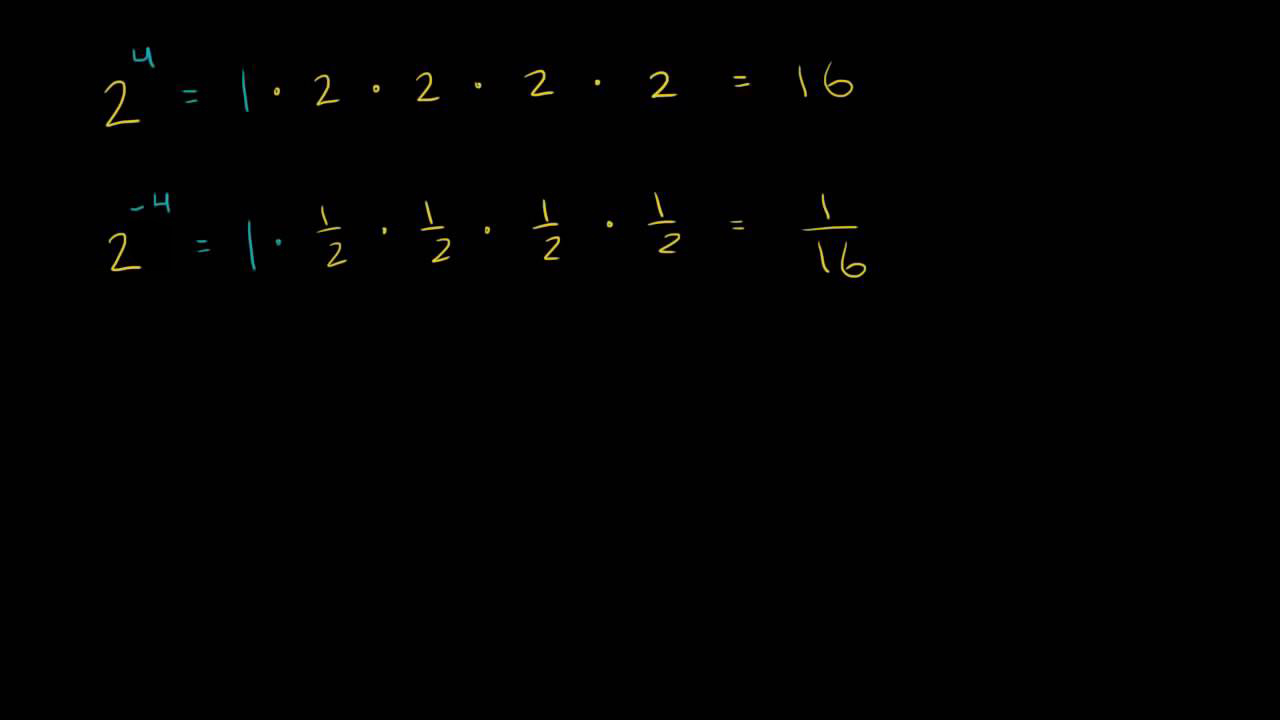 2^4 = 1 · 2 · 2 · 2 · 2 = 16
2^-4 = 1 · 1/2 · 1/2 · 1/2 · 1/2 = 1/16